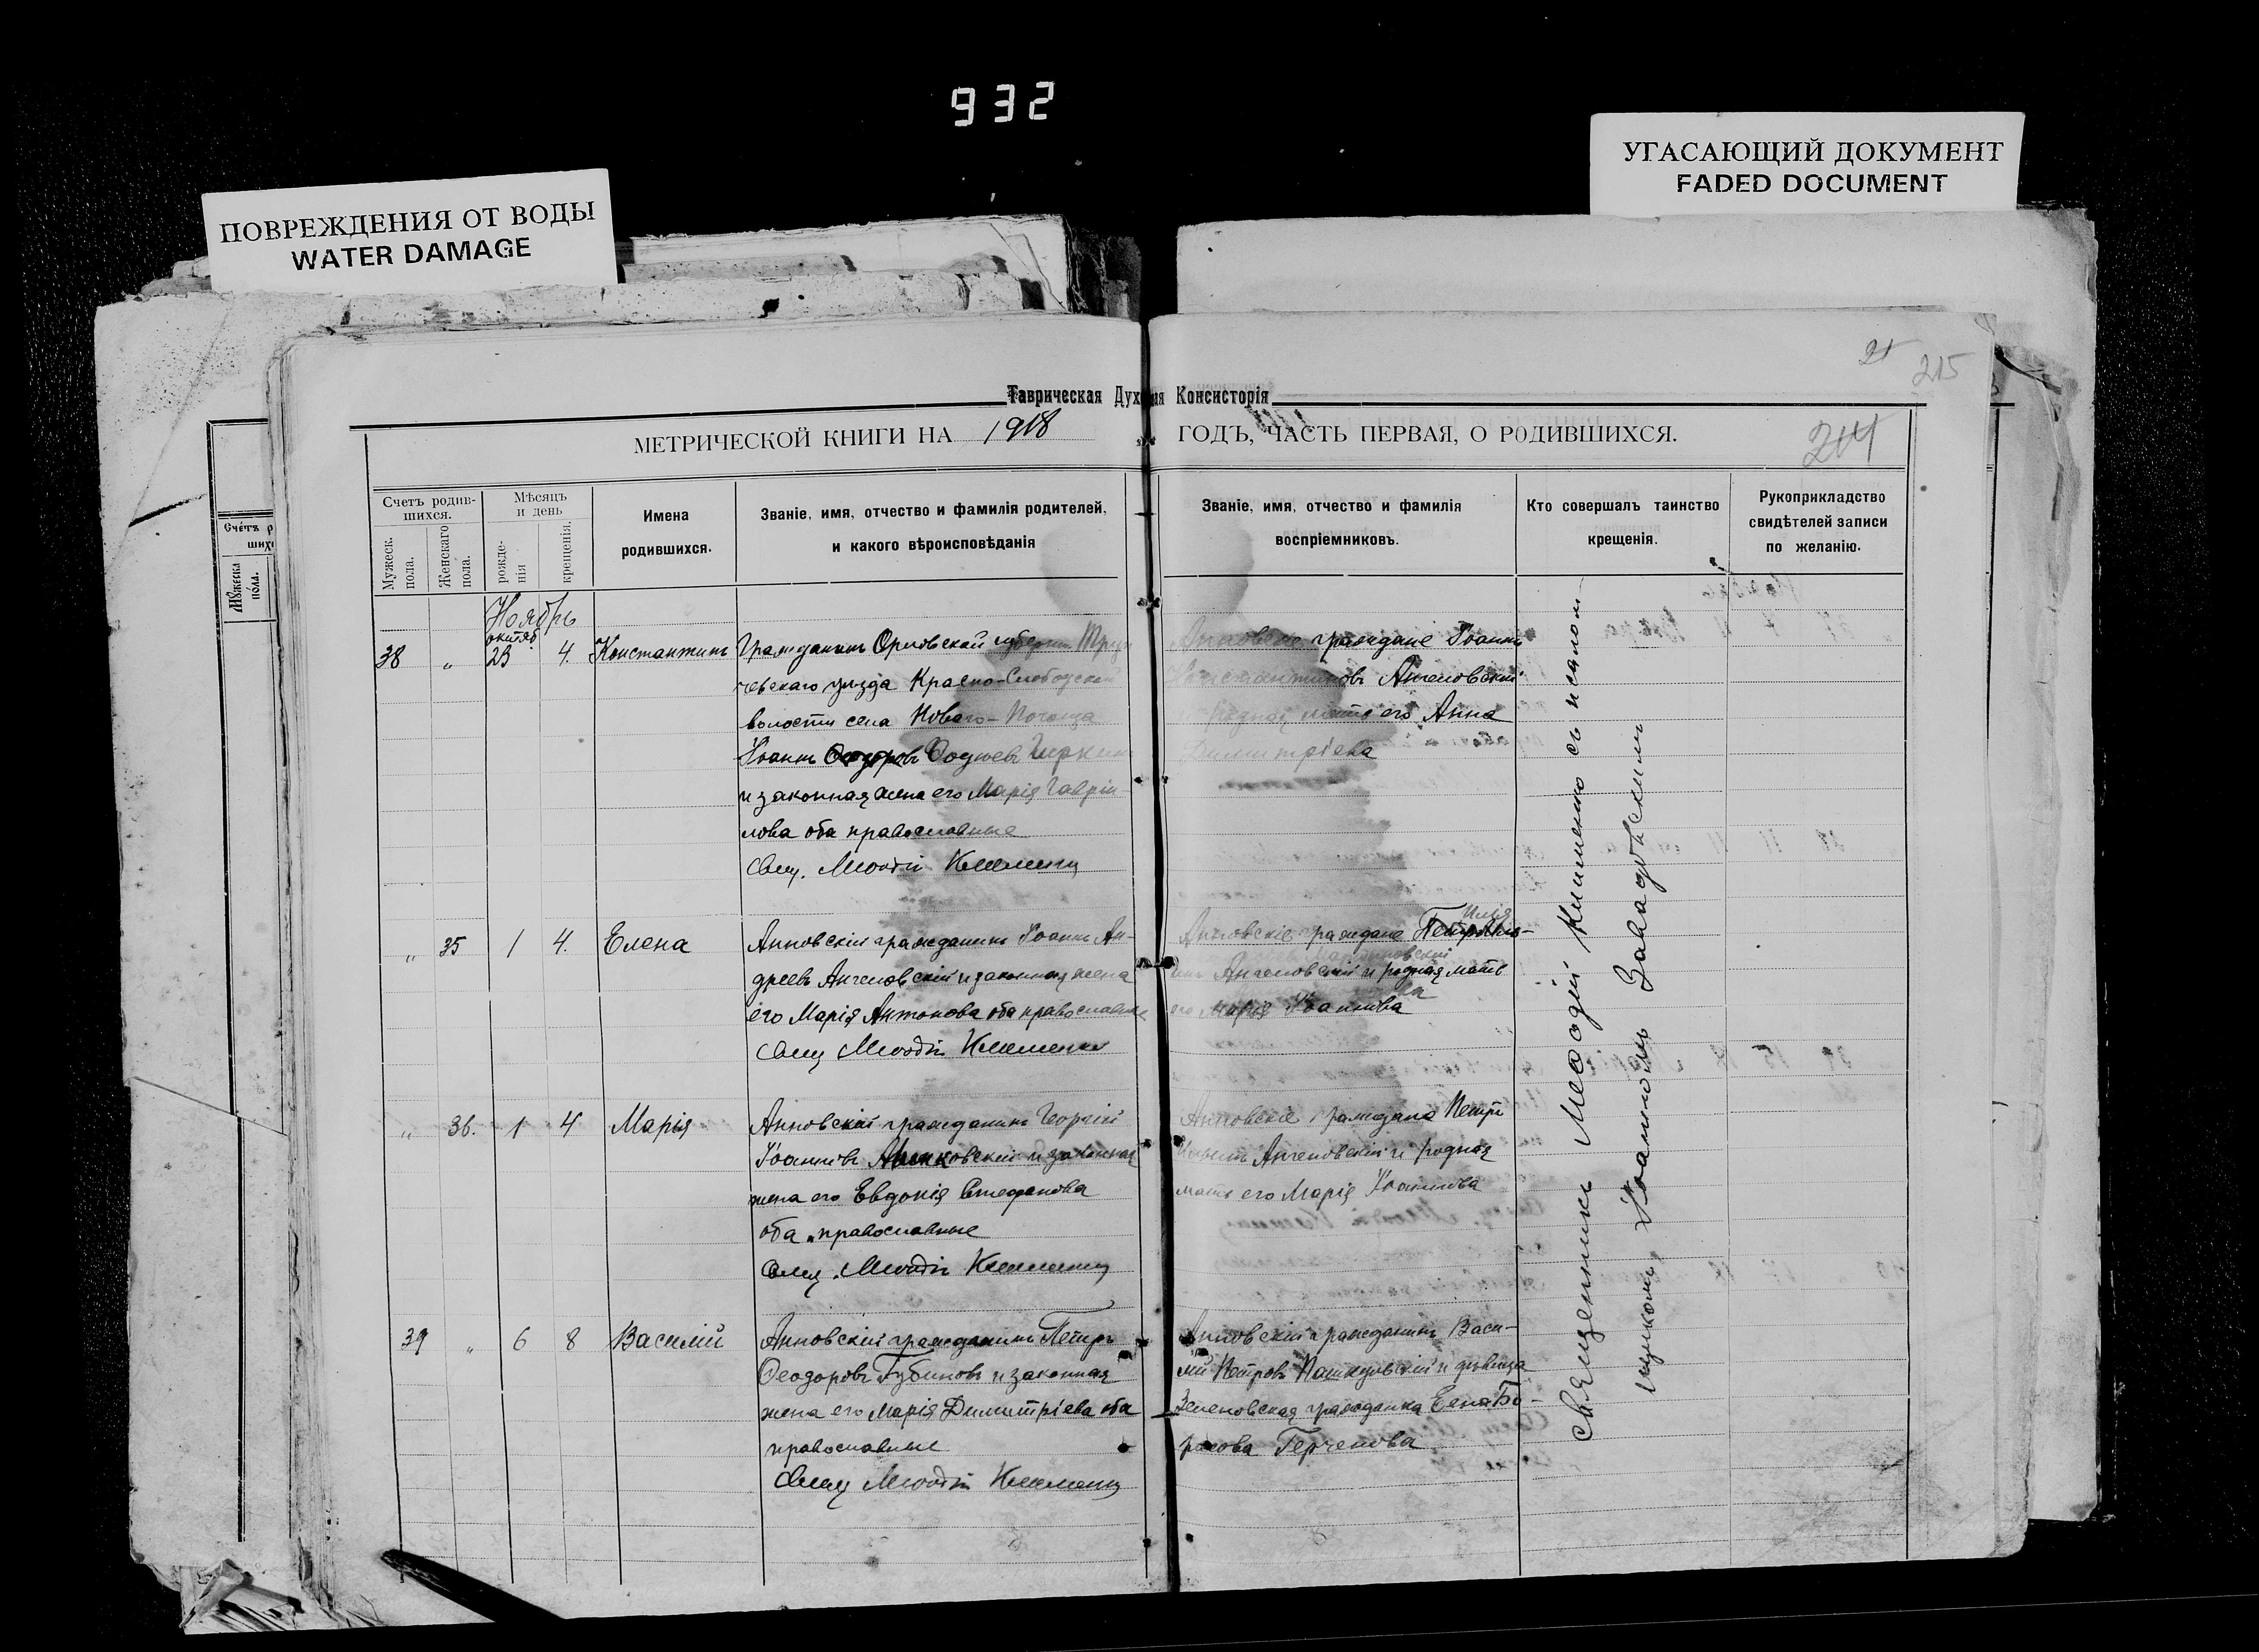 932
ПОВРЕЖДЕНИЯ ОТ ВОДЫ
WATER DAMAGE
УГАСАЮЩИЙ ДОКУМЕНТ
FADED DOCUMENT
21 215
Таврическая Духовная Консисторія
МЕТРИЧЕСКОЙ КНИГИ НА 1918 ГОДЪ, ЧАСТЬ ПЕРВАЯ, О РОДИВШИХСЯ.
214
Счетъ родив-
шихся.
Мужеск.
пола.
Женскаго
пола.
Мѣсяцъ
и день
рожде-
нія
крещенія.
Имена
родившихся.
Званіе, имя, отчество и фамилія родителей,
и какого вѣроисповѣданія
Званіе, имя, отчество и фамилія
воспріемниковъ.
Кто совершалъ таинство
крещенія.
Рукоприкладство
свидѣтелей записи
по желанію.
Ноябрь
октяб
38 " 23 4. Константинъ
Гражданинъ Орловской губерніи Труб
чевскаго уѣзда Красно-Слободской
волости села Новаго-Погоща
Іоаннъ Ѳеодоровъ
и законная жена его Марія Гаврии-
лова оба православные
Свящ. Меѳодій Клименко
граждане Іоаннъ
Константиновъ Ангеловскій
родная мать его Анна
Димитріева
" 35 1 4. Елена
Анновскій гражданинъ Іоаннъ Ан-
дреевъ Ангеловскій и законная жена
его Марія Антонова оба православные
Свящ Меѳодій Клименко
Анновскіе граждане
Ангеловскій и родная мать
его Марія Іоаннова
" 36. 1 4 Марія
Анновскій гражданинъ Георгій
Іоанновъ и законная
жена его Евдокія Стефанова
оба православные
Свящ. Меѳодій Клименко
Анновскіе граждане Петръ
Ангеловскій и родная
мать его Марія Іоаннова
39 " 6 8 Василій
Анновскій гражданинъ Петръ
Ѳеодоровъ Губиновъ и законная
жена его Марія Димитріева оба
православные
Свящ Меѳодій Клименко
Анновскій гражданинъ Васи-
лій Петровъ и дѣвица
Зеленовская гражданка Елена Бо-
рисова Герченова
Священникъ Меѳодій Клименко съ псалом-
щикомъ Іоанномъ Завадовскимъ